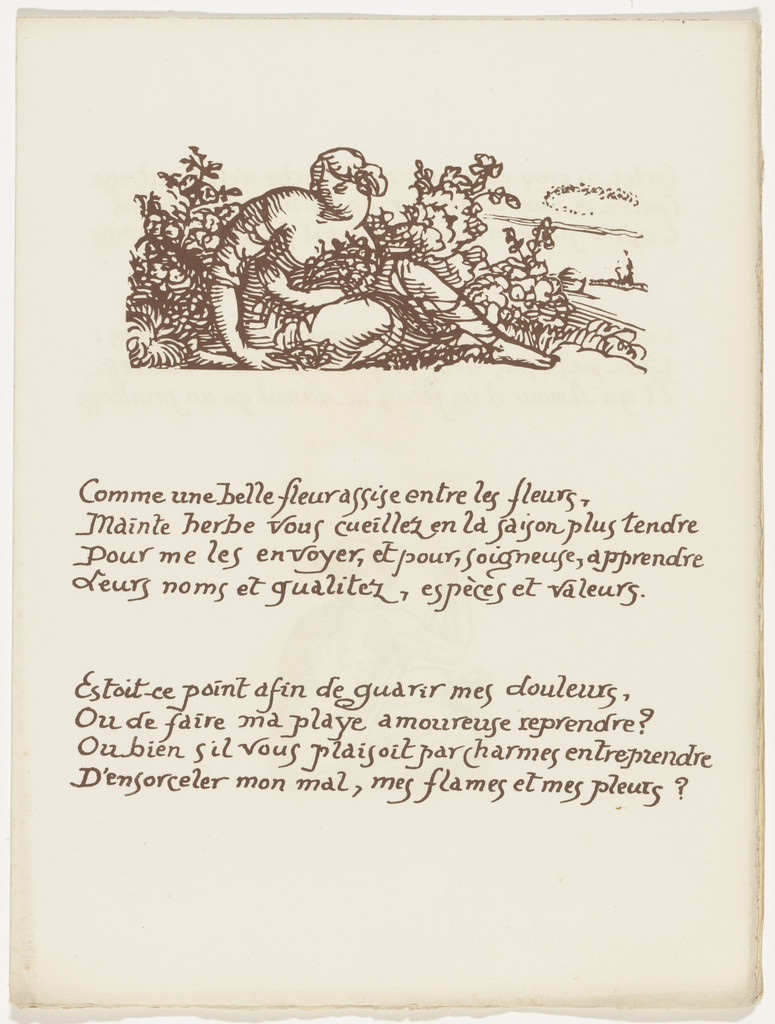 Comme une belle fleur assise entre les fleurs,
Mainte herbe vous cueillez en la saison plus tendre
Pour me les envoyer, et pour, soigneuse, apprendre
Leurs noms et qualitez, espèces et valeurs.
Estoit-ce point afin de guarir mes douleurs,
Ou de faire ma playe amoureuse reprendre?
Ou bien s'il vous plaisoit par charmes entreprendre
D'ensorceler mon mal, mes flames et mes pleurs ?